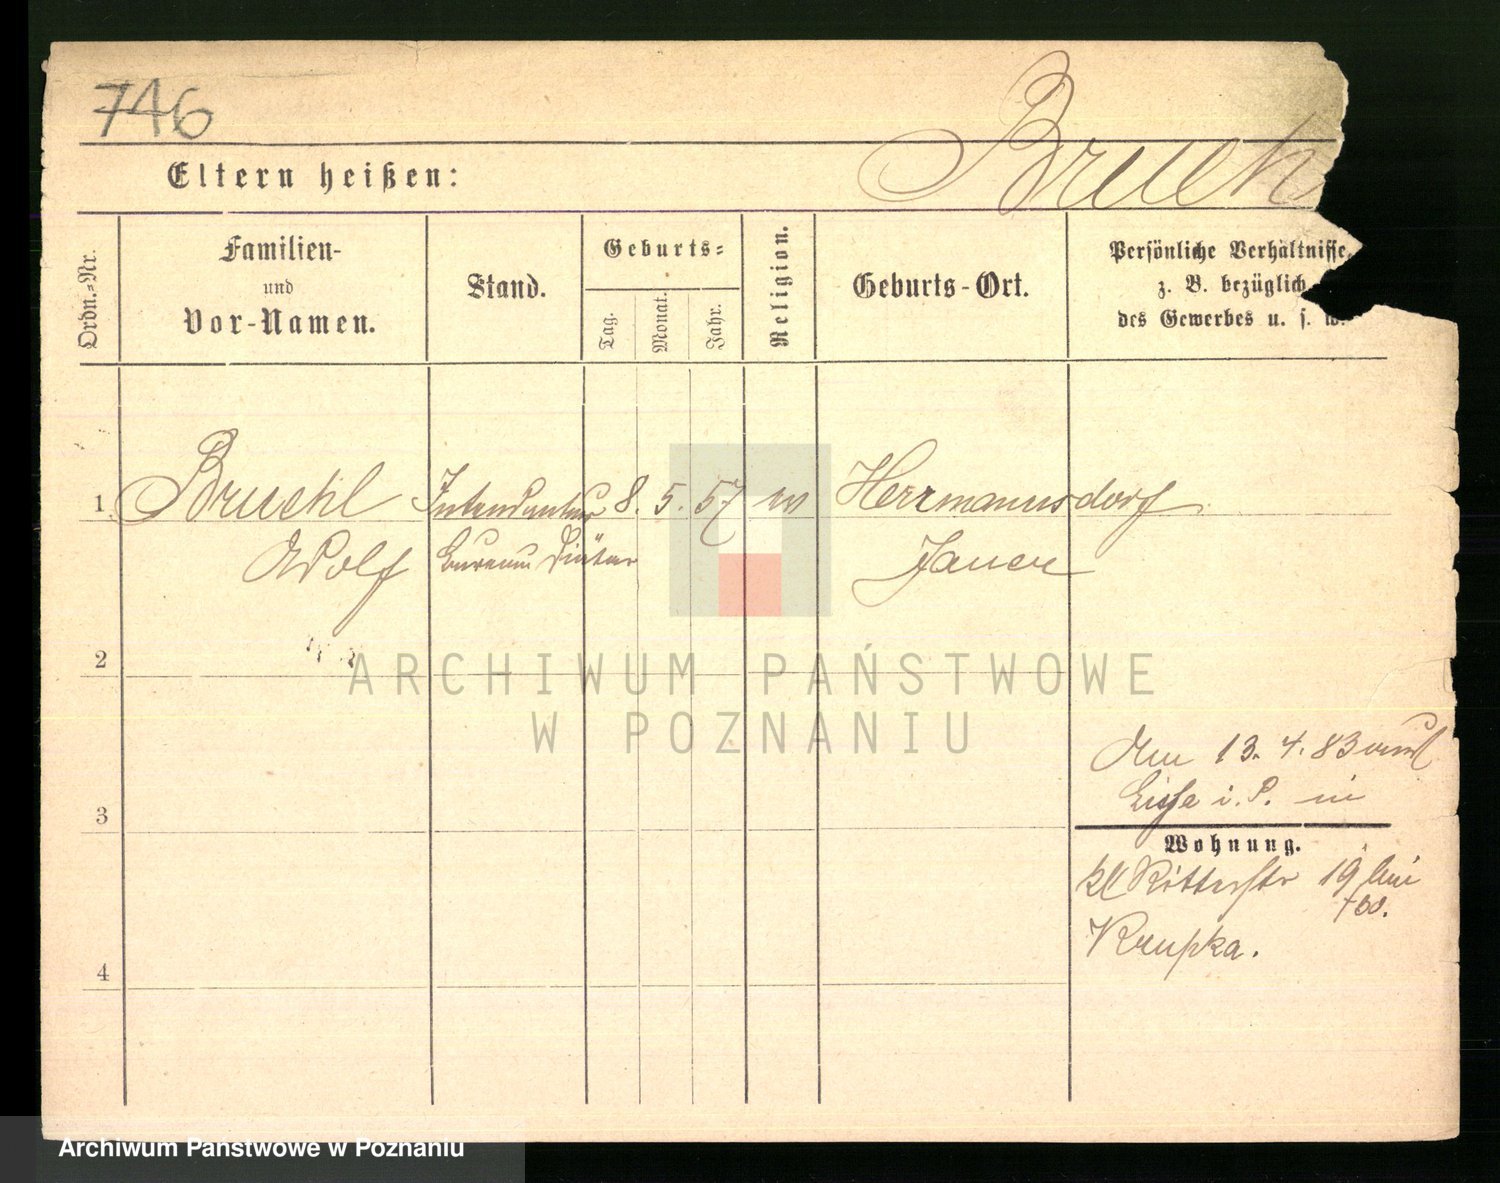 746
Brueh
Eltern heißen:
Ordn.-Nr.
Familien-
und
Vor-Namen.
Stand.
Geburts-
Tag.
Monat.
Jahr.
Religion.
Geburts-Ort.
Persönliche Verhältnisse,
z. B. bezüglich
des Gewerbes u. s. w.
1 Bruehl Intendantur 8. 5. 57 Herrmannsdorf
Adolf Bureau Diätar Jauer
2
ARCHIWUM PAŃSTWOWE
W POZNANIU
Am 13. 4. 83
Lissa i. P. in
3
Wohnung.
kl Ritterstr 19 bei
Krupka.
4
Archiwum Państwowe w Poznaniu